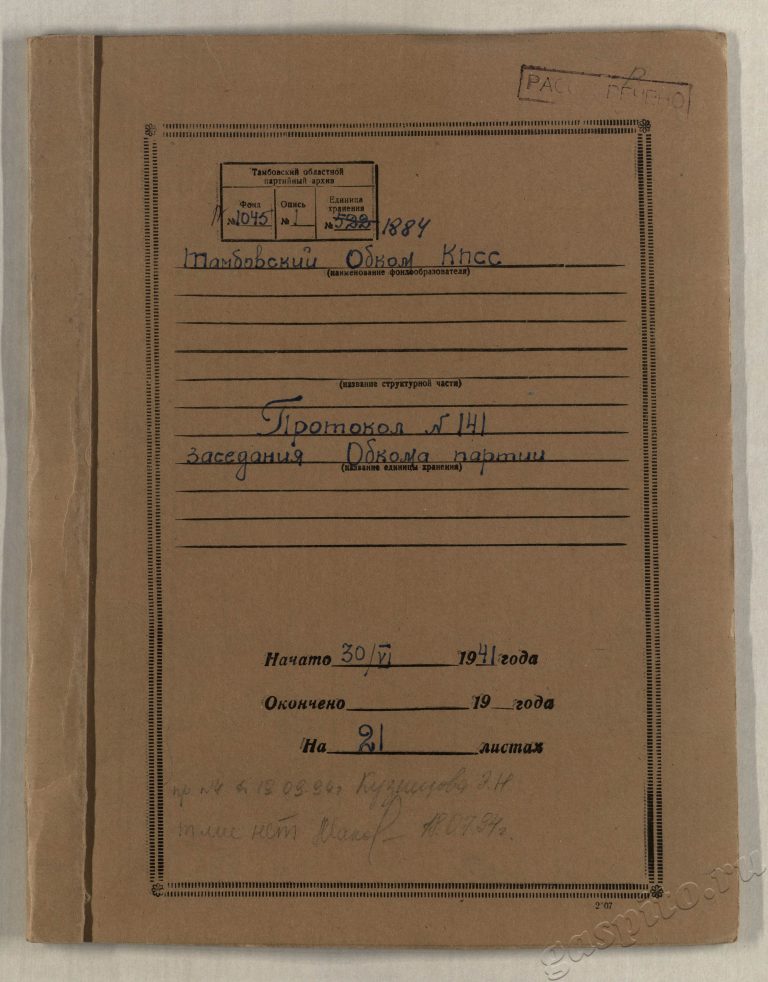 Тамбовский областной
партийный архив
Фонд
№ 1045
Опись
№ 1
Единица
хранения
№ 522 1884
Тамбовский Обком КПСС
(наименование фондообразователя)
(название структурной части)
Протокол № 141
заседания Обкома партии
(название единицы хранения)
Начато 30/VI 1941 года
Окончено 19 года
На 21 листах
Кузнецова
нет 18.07.94г.
gaspito.ru